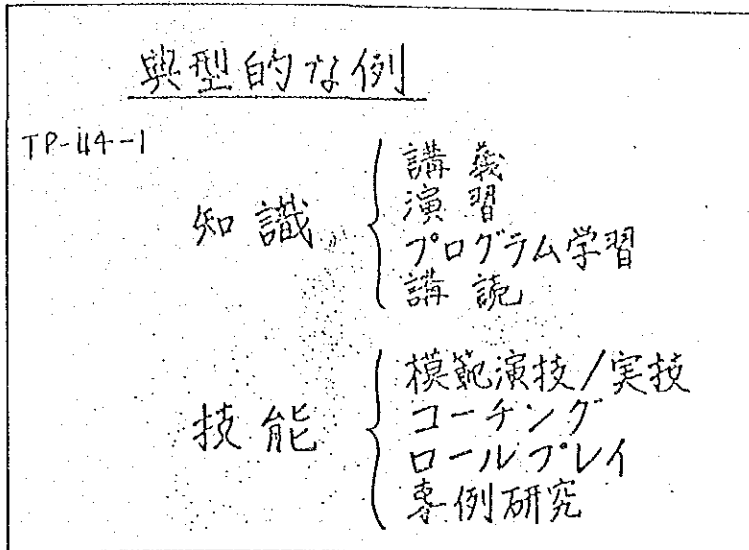 典型的な例
TP-114-1
知識
講義
演習
プログラム学習
講読
技能
模範演技/実技
コーチング
ロールプレイ
事例研究